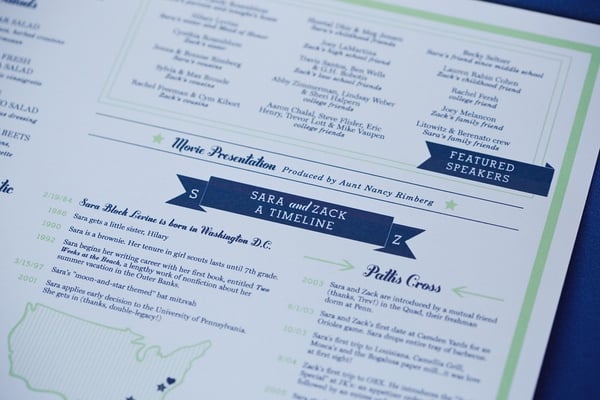 AR SALAD
A SALAD
TO SALAD
BEETS
Hilary Levine
Cynthia Rosenbloom
Zach's sister
Jenna & Rimberg
Zach's cousins
Sylvia & Max Broude
Zach's cousins
Rachel Freeman & Cym Kibort
Zach's cousins
Sara's childhood friends
Joey LaMartina
Zach's high school friend
Travis Santos, Ben Wells
& G.H. Bobotis
Zach's law school friends
Abby Zimmerman, Lindsay Weber
& Sheri Halpern
college friends
Aaron Chalal, Steve Flisler, Eric
Henry, Trevor Lott & Mike Vaupen
college friends
Becky Seltzer
Sara's friend since middle school
Lauren Rabin Cohen
Zach's childhood friend
Rachel Fersh
college friend
Joey Melancon
Zach's family friend
Litowitz & Berenato crew
Sara's family friends
FEATURED
SPEAKERS
Movie Presentation Produced by Aunt Nancy Rimberg
S
SARA and ZACK
A TIMELINE
Z
2/19/84 Sara Block Levine is born in Washington D.C.
1986 Sara gets a little sister, Hilary
1990 Sara is a brownie. Her tenure in girl scouts lasts until 7th grade.
1992 Sara begins her writing career with her first book, entitled Two
Weeks at the Beach, a lengthy work of nonfiction about her
summer vacation in the Outer Banks.
3/15/97 Sara's "moon-and-star themed" bat mitzvah
2001 Sara applies early decision to the University of Pennsylvania.
She gets in (thanks, double-legacy!)
Paths Cross
2003 Sara and Zack are introduced by a mutual friend
(thanks, Trev!) in the Quad, their freshman
dorm at Penn.
Sara and Zack's first date at Camden Yards for an
Orioles game. Sara drops entire tray of barbecue.
Sara's first trip to Louisiana. Camellia Grill,
Mosca's and the Bogalusa paper mill...it was love
at first sight!
Zack's first trip to